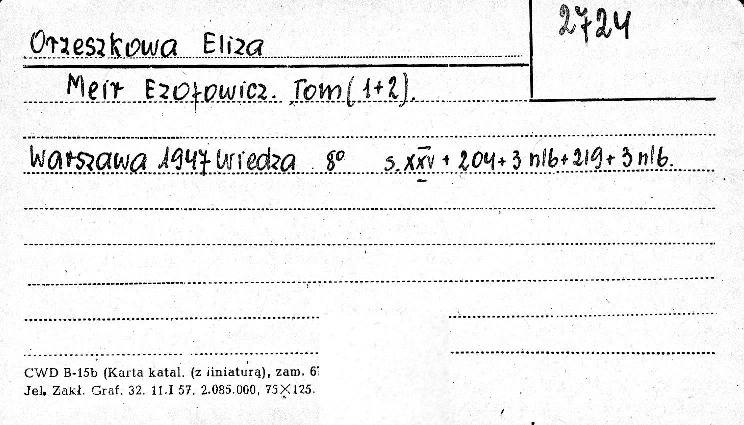 2724
Orzeszkowa Eliza
Meir Ezofowicz. Tom (1+2).
Warszawa 1947 Wiedza 8° s. XXV + 204 + 3 nlb + 219 + 3 nlb.
CWD B-15b (Karta katal. (z liniaturą), zam. 6
Jel. Zakł. Graf. 32. 11.I 57. 2.085.000, 75×125.